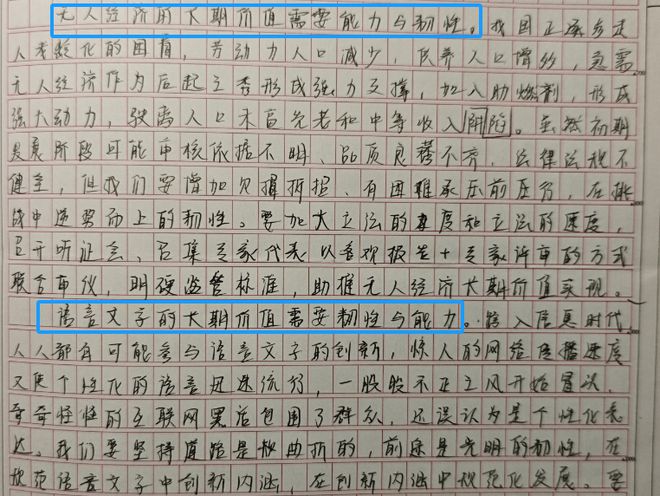 无人经济的大期价值需要能力与韧性。我国正承受老
人老龄化的困扰，劳动力人口减少，抚养人口增多，急需
无人经济作为后起之秀形成强力支撑，加入助燃剂，形成
强大动力，驶离人口未富先老和中等收入陷阱。虽然初期
发展阶段可能审核依据不明、品质良莠不齐，法律法规不
健全，但我们要增加 有困难承压前行，在挑
战中逆势而上的韧性。要加大立法的力度和立法的速度，
召开听证会，召集专家代表以客观报告+专家评审的方式
联合审议，明确监管标准，助推无人经济大期价值实现。
语言文字的大期价值需要韧性与能力。跨入信息时代
人人都有可能参与语言文字的创新，惊人的网络传播速度
又使个性化的语言迅速流行，一股股不正之风开始冒头，
奇奇怪怪的互联网黑话包围了群众，还误认为是个性化表
达。我们要坚持道路是曲折的，前途是光明的韧性，在
规范语言文字中创新内涵，在创新内涵中规范化发展。要